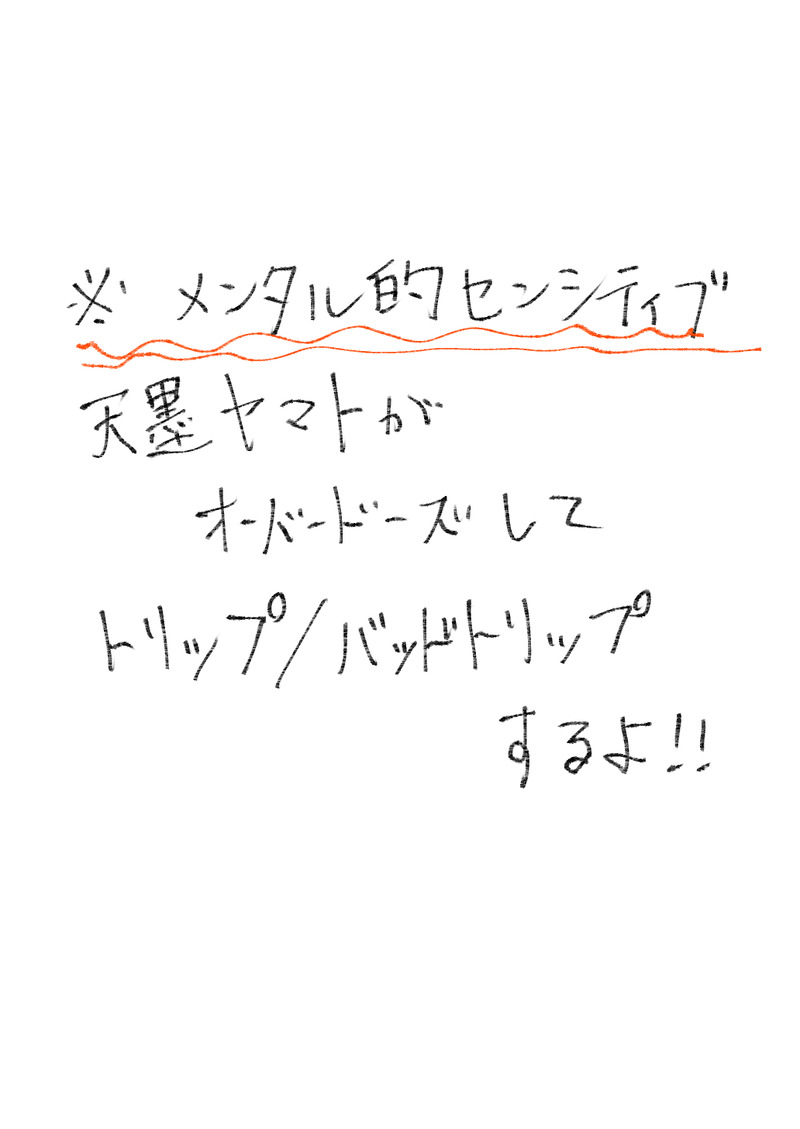 ※ メンタル的センシティブ
天墨ヤマトが
オーバードーズして
トリップ/バッドトリップ
するよ!!